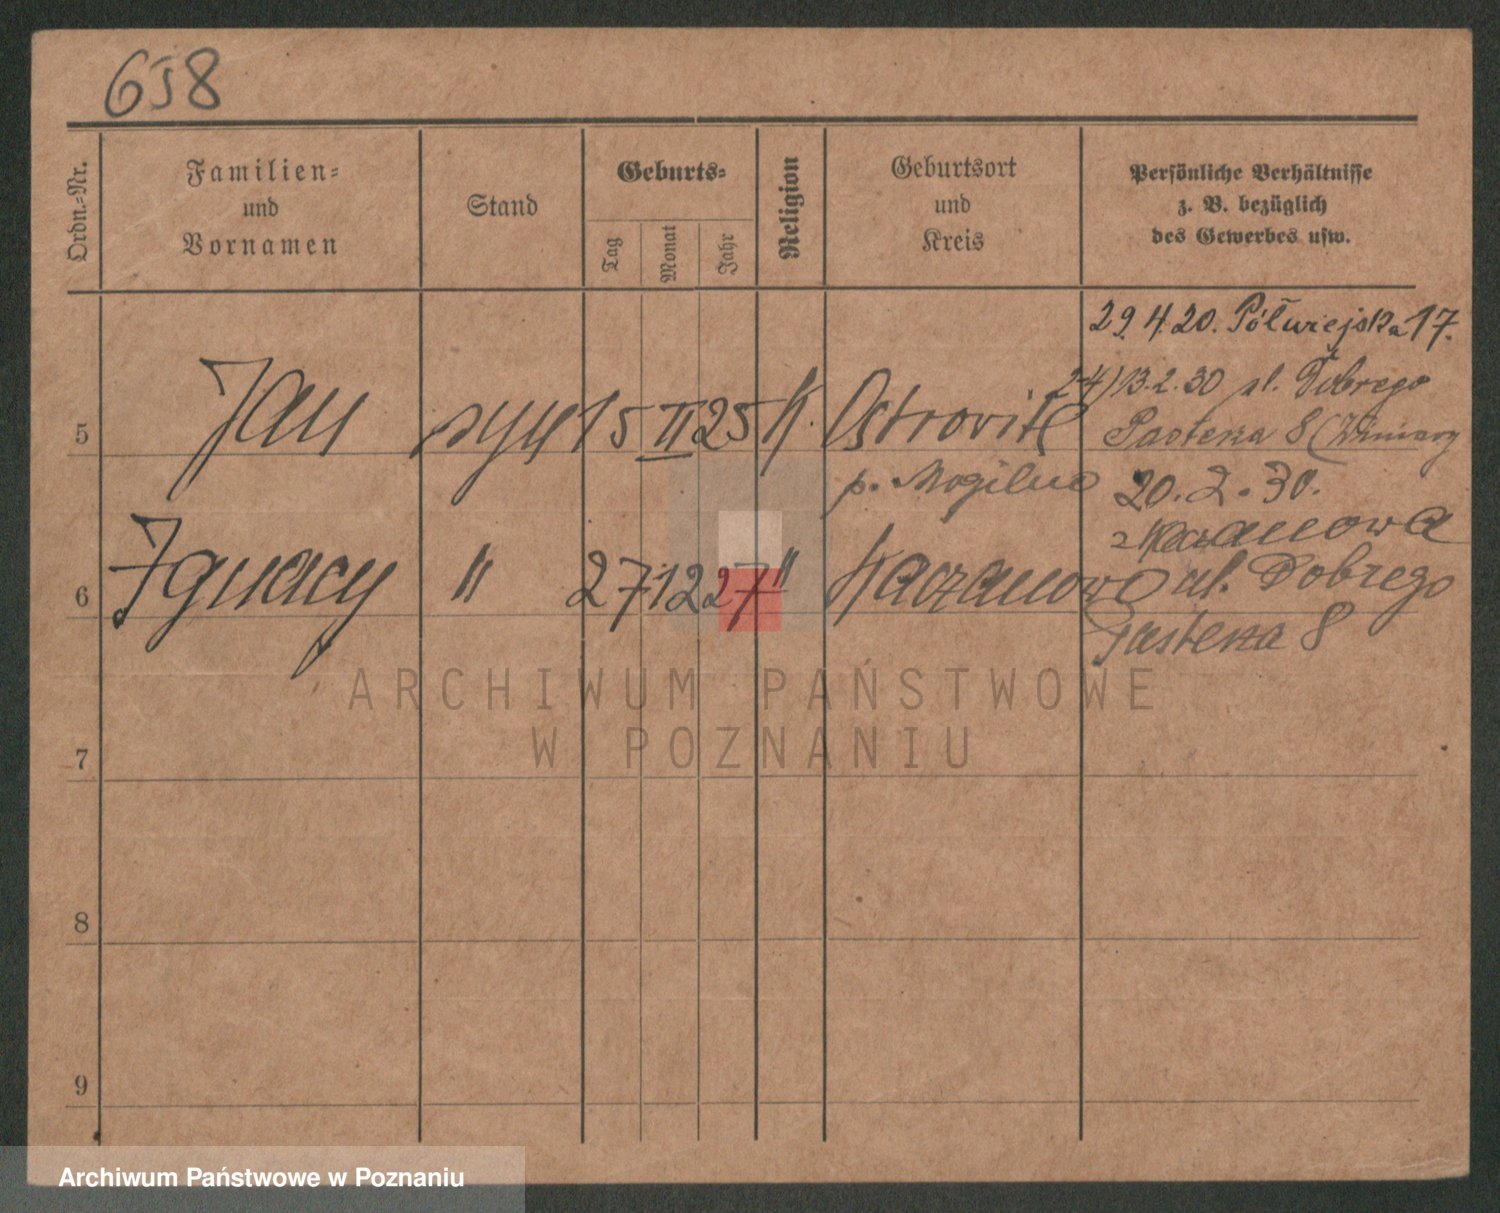 658
Ordn.-Nr.
Familien-
und
Vornamen
Stand
Geburts-
Tag
Monat
Jahr
Religion
Geburtsort
und
Kreis
Persönliche Verhältnisse
z. B. bezüglich
des Gewerbes usw.
29.4.20. Półwiejska 17.
2-4) 13.2.30 ul. Dobrego
Pasterza 8 (Winiary
5 Jan syn 15 II 25 K. Ostrovite
p. Mogilno
20.2.30.
z Kaczanowa
6 Ignacy " 27 12 27 " Kaczanowo
ul. Dobrego
Pasterza 8
ARCHIWUM PAŃSTWOWE
W POZNANIU
7
8
9
Archiwum Państwowe w Poznaniu